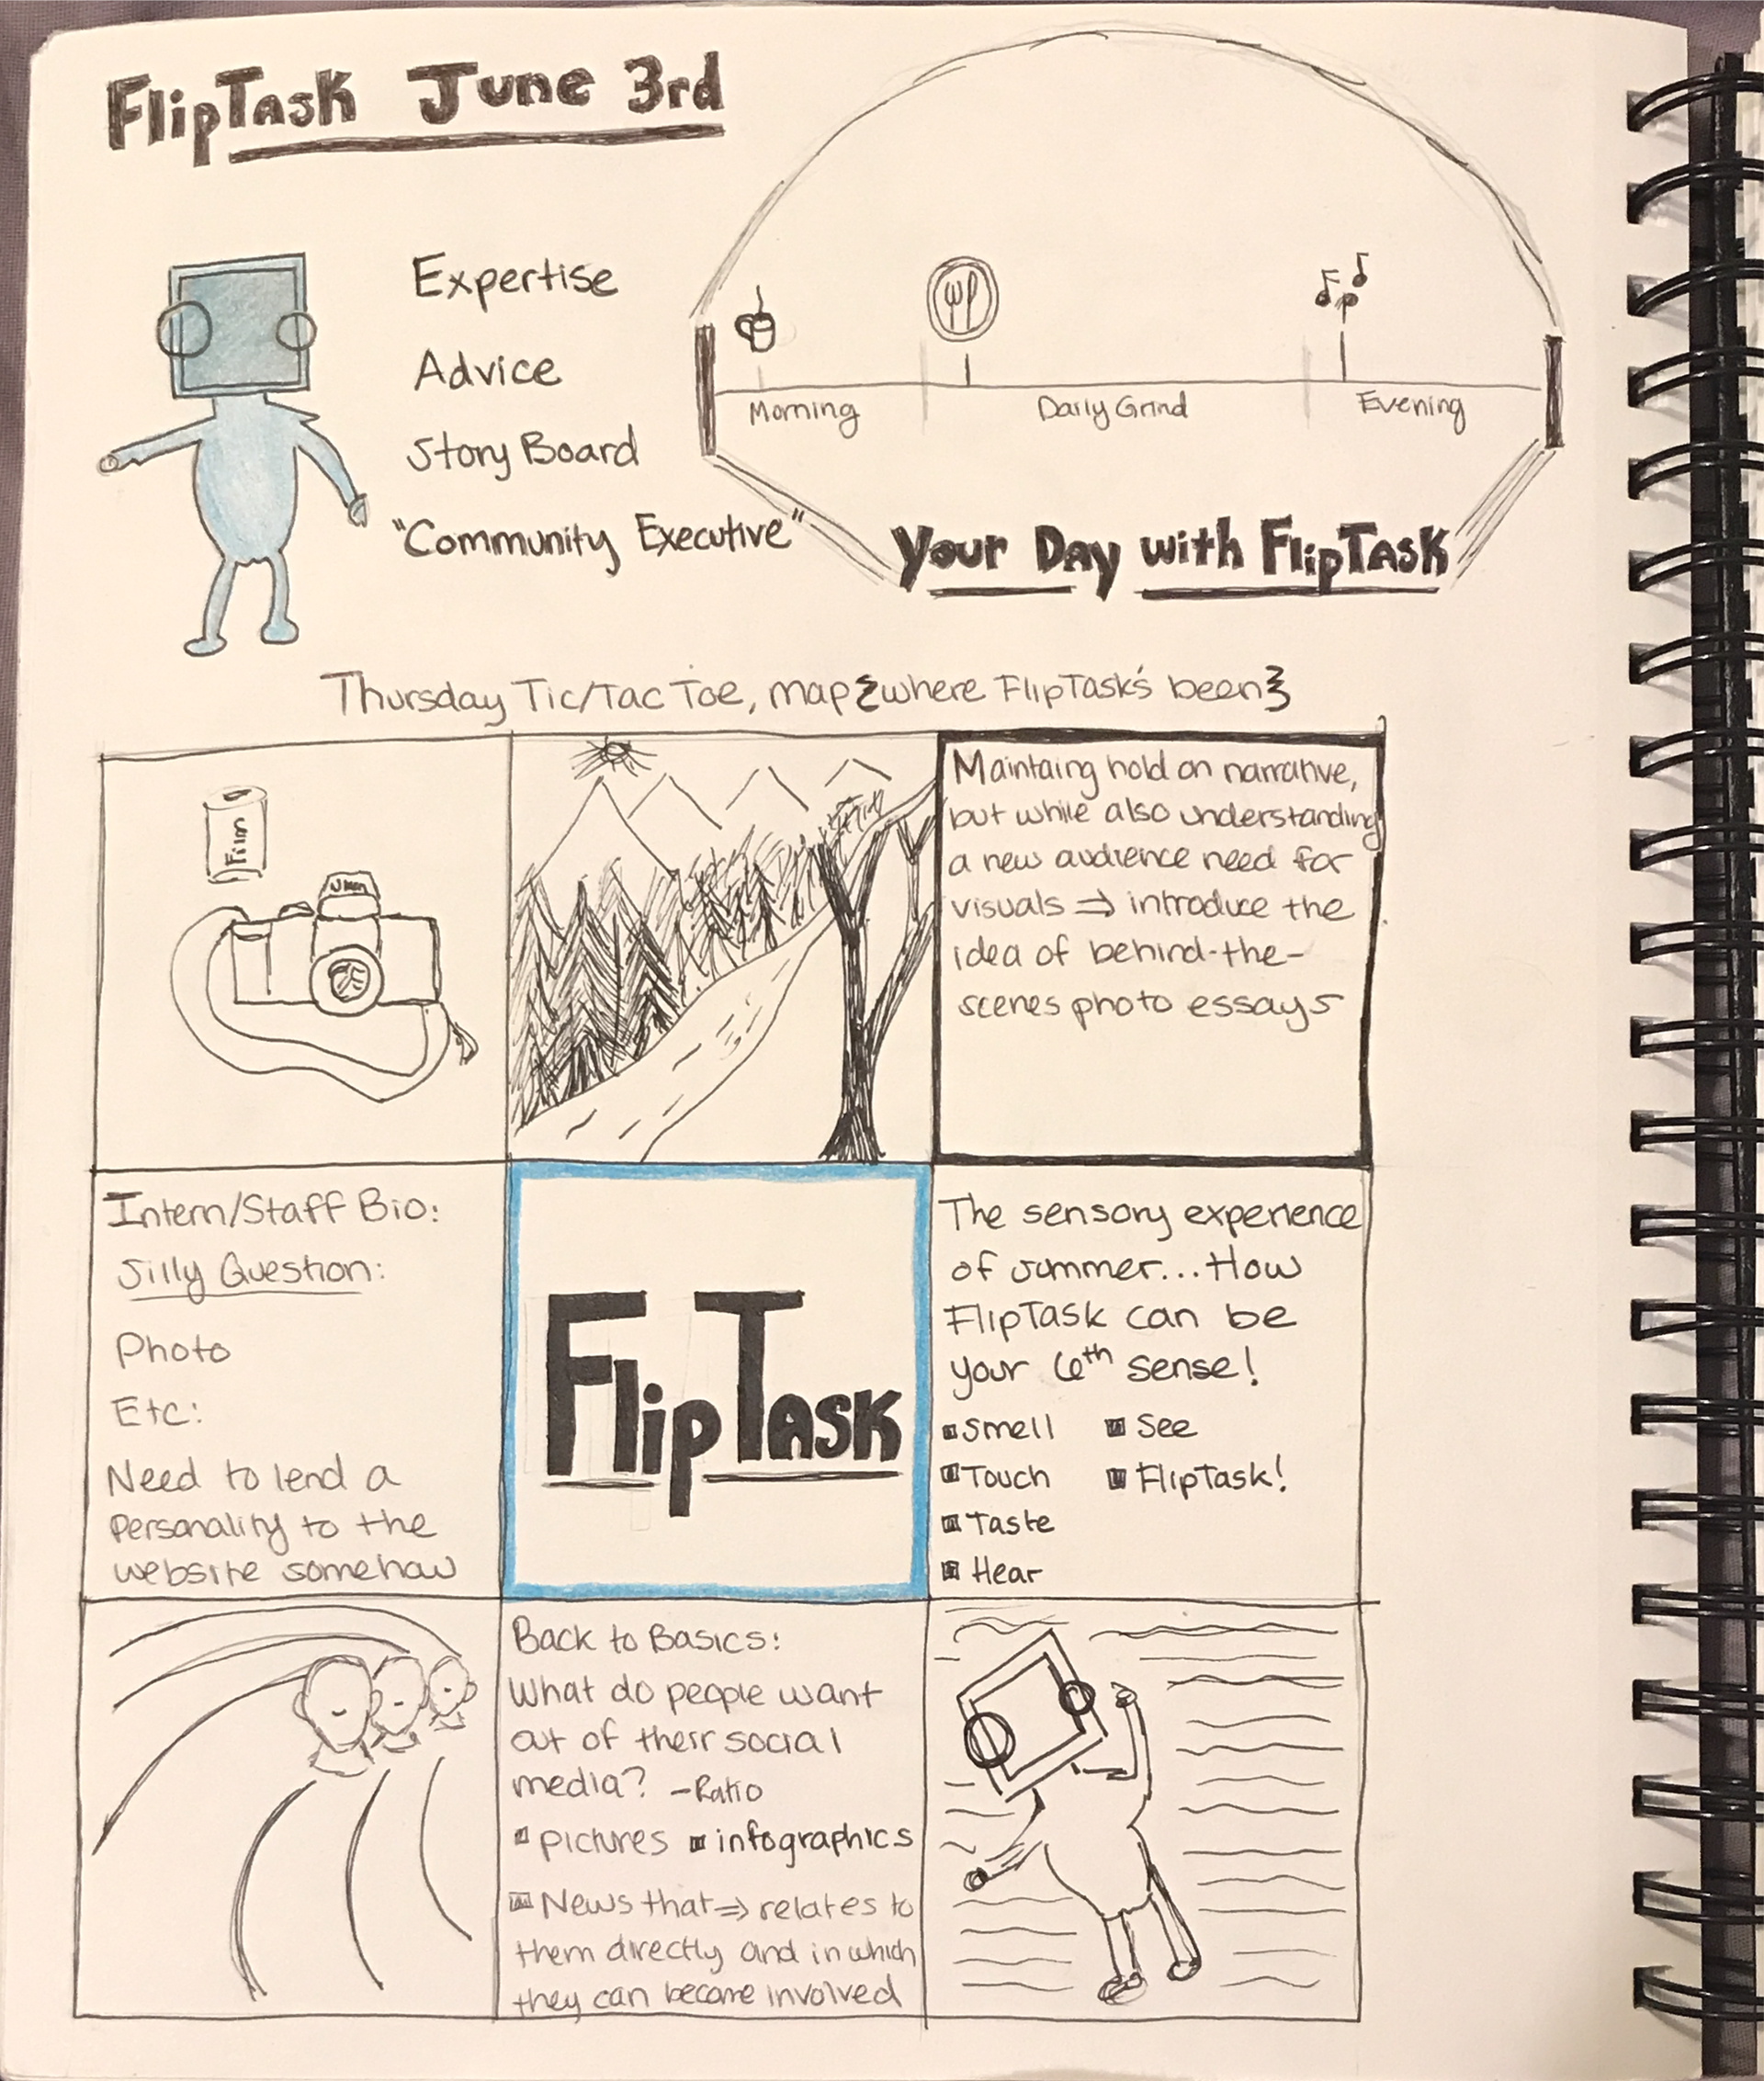 FlipTask June 3rd
Expertise
Advice
Story Board
"Community Executive"
Morning
Daily Grind
Evening
Your Day with FlipTask
Thursday Tic/Tac Toe, map {where FlipTask's been}
Film
Maintaing hold on narrative,
but while also understanding
a new audience need for
visuals ⇒ introduce the
idea of behind-the-
scenes photo essays
Intern/Staff Bio:
Silly Question:
Photo
Etc:
Need to lend a
personality to the
website somehow
FlipTask
The sensory experience
of summer... How
FlipTask can be
your 6th sense!
Smell
See
Touch
FlipTask!
Taste
Hear
Back to Basics:
What do people want
out of their social
media? -Ratio
pictures
infographics
News that ⇒ relates to
them directly and in which
they can become involved